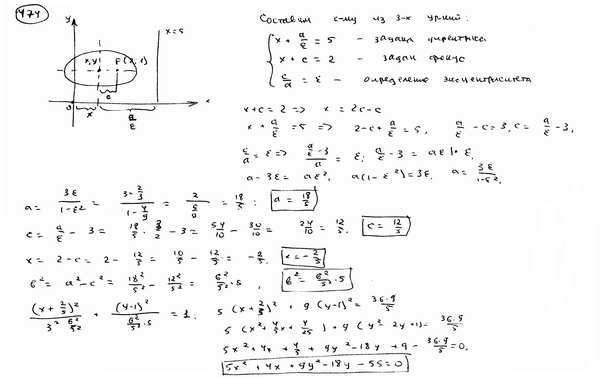 474
y
x=5
x,y
F(2;1)
c
x
0
x
a/ε
Составим с-му из 3-х ур-ний:
x + a/ε = 5 - задана директриса
x + c = 2 - задан фокус
c/a = ε - определение эксцентриситета
x+c=2 => x=2-c
x + a/ε = 5 => 2-c+a/ε=5, a/ε-c=3, c=a/ε-3,
c/a=ε => (a/ε-3)/a = ε; a/ε-3=aε |·ε
a-3ε=aε², a(1-ε²)=3ε. a=3ε/(1-ε²).
a = 3ε/(1-ε²) = = = 18/5; a=18/5
c = a/ε - 3 = 18/5 · 3/2 - 3 = 54/10 - 30/10 = 24/10 = 12/5.
x = 2-c = 2 - 12/5 = 10/5 - 12/5 = -2/5.
в² = a²-c² = 18²/5² - 12²/5² = 6²/5²·5, в²=6²/5²·5
= 1; 5(x+2/5)² + 9(y-1)² = 36·9/5
5(x²+4/5x+4/25)+9(y²-2y+1)=36·9/5
5x²+4x+4/5+9y²-18y+9-36·9/5=0,
5x²+4x+9y²-18y-55=0